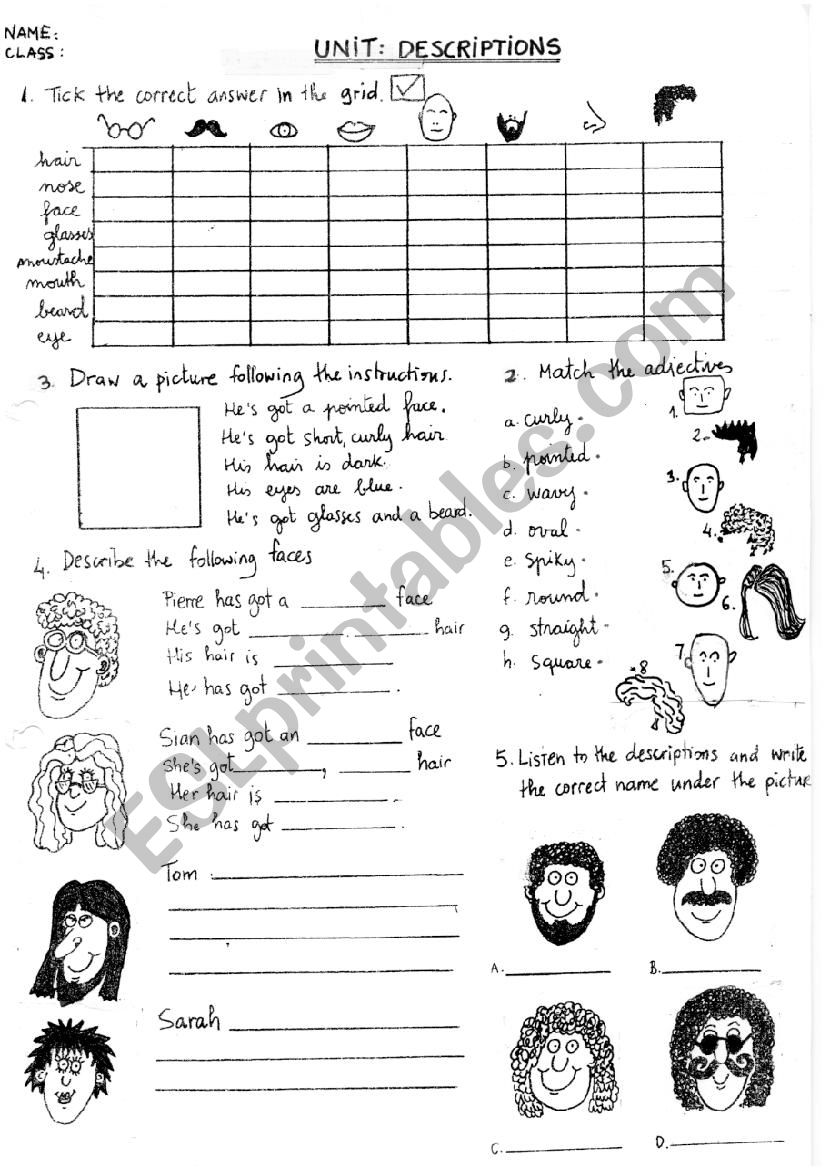 NAME:
CLASS:
UNIT: DESCRIPTIONS
1. Tick the correct answer in the grid.
hair
nose
face
glasses
moustache
mouth
beard
eye
3. Draw a picture following the instructions.
He's got a pointed face.
He's got short, curly hair
His hair is dark.
His eyes are blue.
He's got glasses and a beard.
2. Match the adjectives
a. curly -
b. pointed -
c. wavy -
d. oval -
e. spiky -
f. round -
g. straight -
h. square -
1.
2.
3.
4.
5.
6.
7.
8
4. Describe the following faces
Pierre has got a ________ face
He's got ________ . ________ hair
His hair is ________
He has got ________ .
Sian has got an ________ face
She's got ________, ________ hair
Her hair is ________ .
She has got ________ .
Tom : ________
Sarah ________
5. Listen to the descriptions and write
the correct name under the picture
A. ________
B. ________
C. ________
D. ________
ESLprintables.com